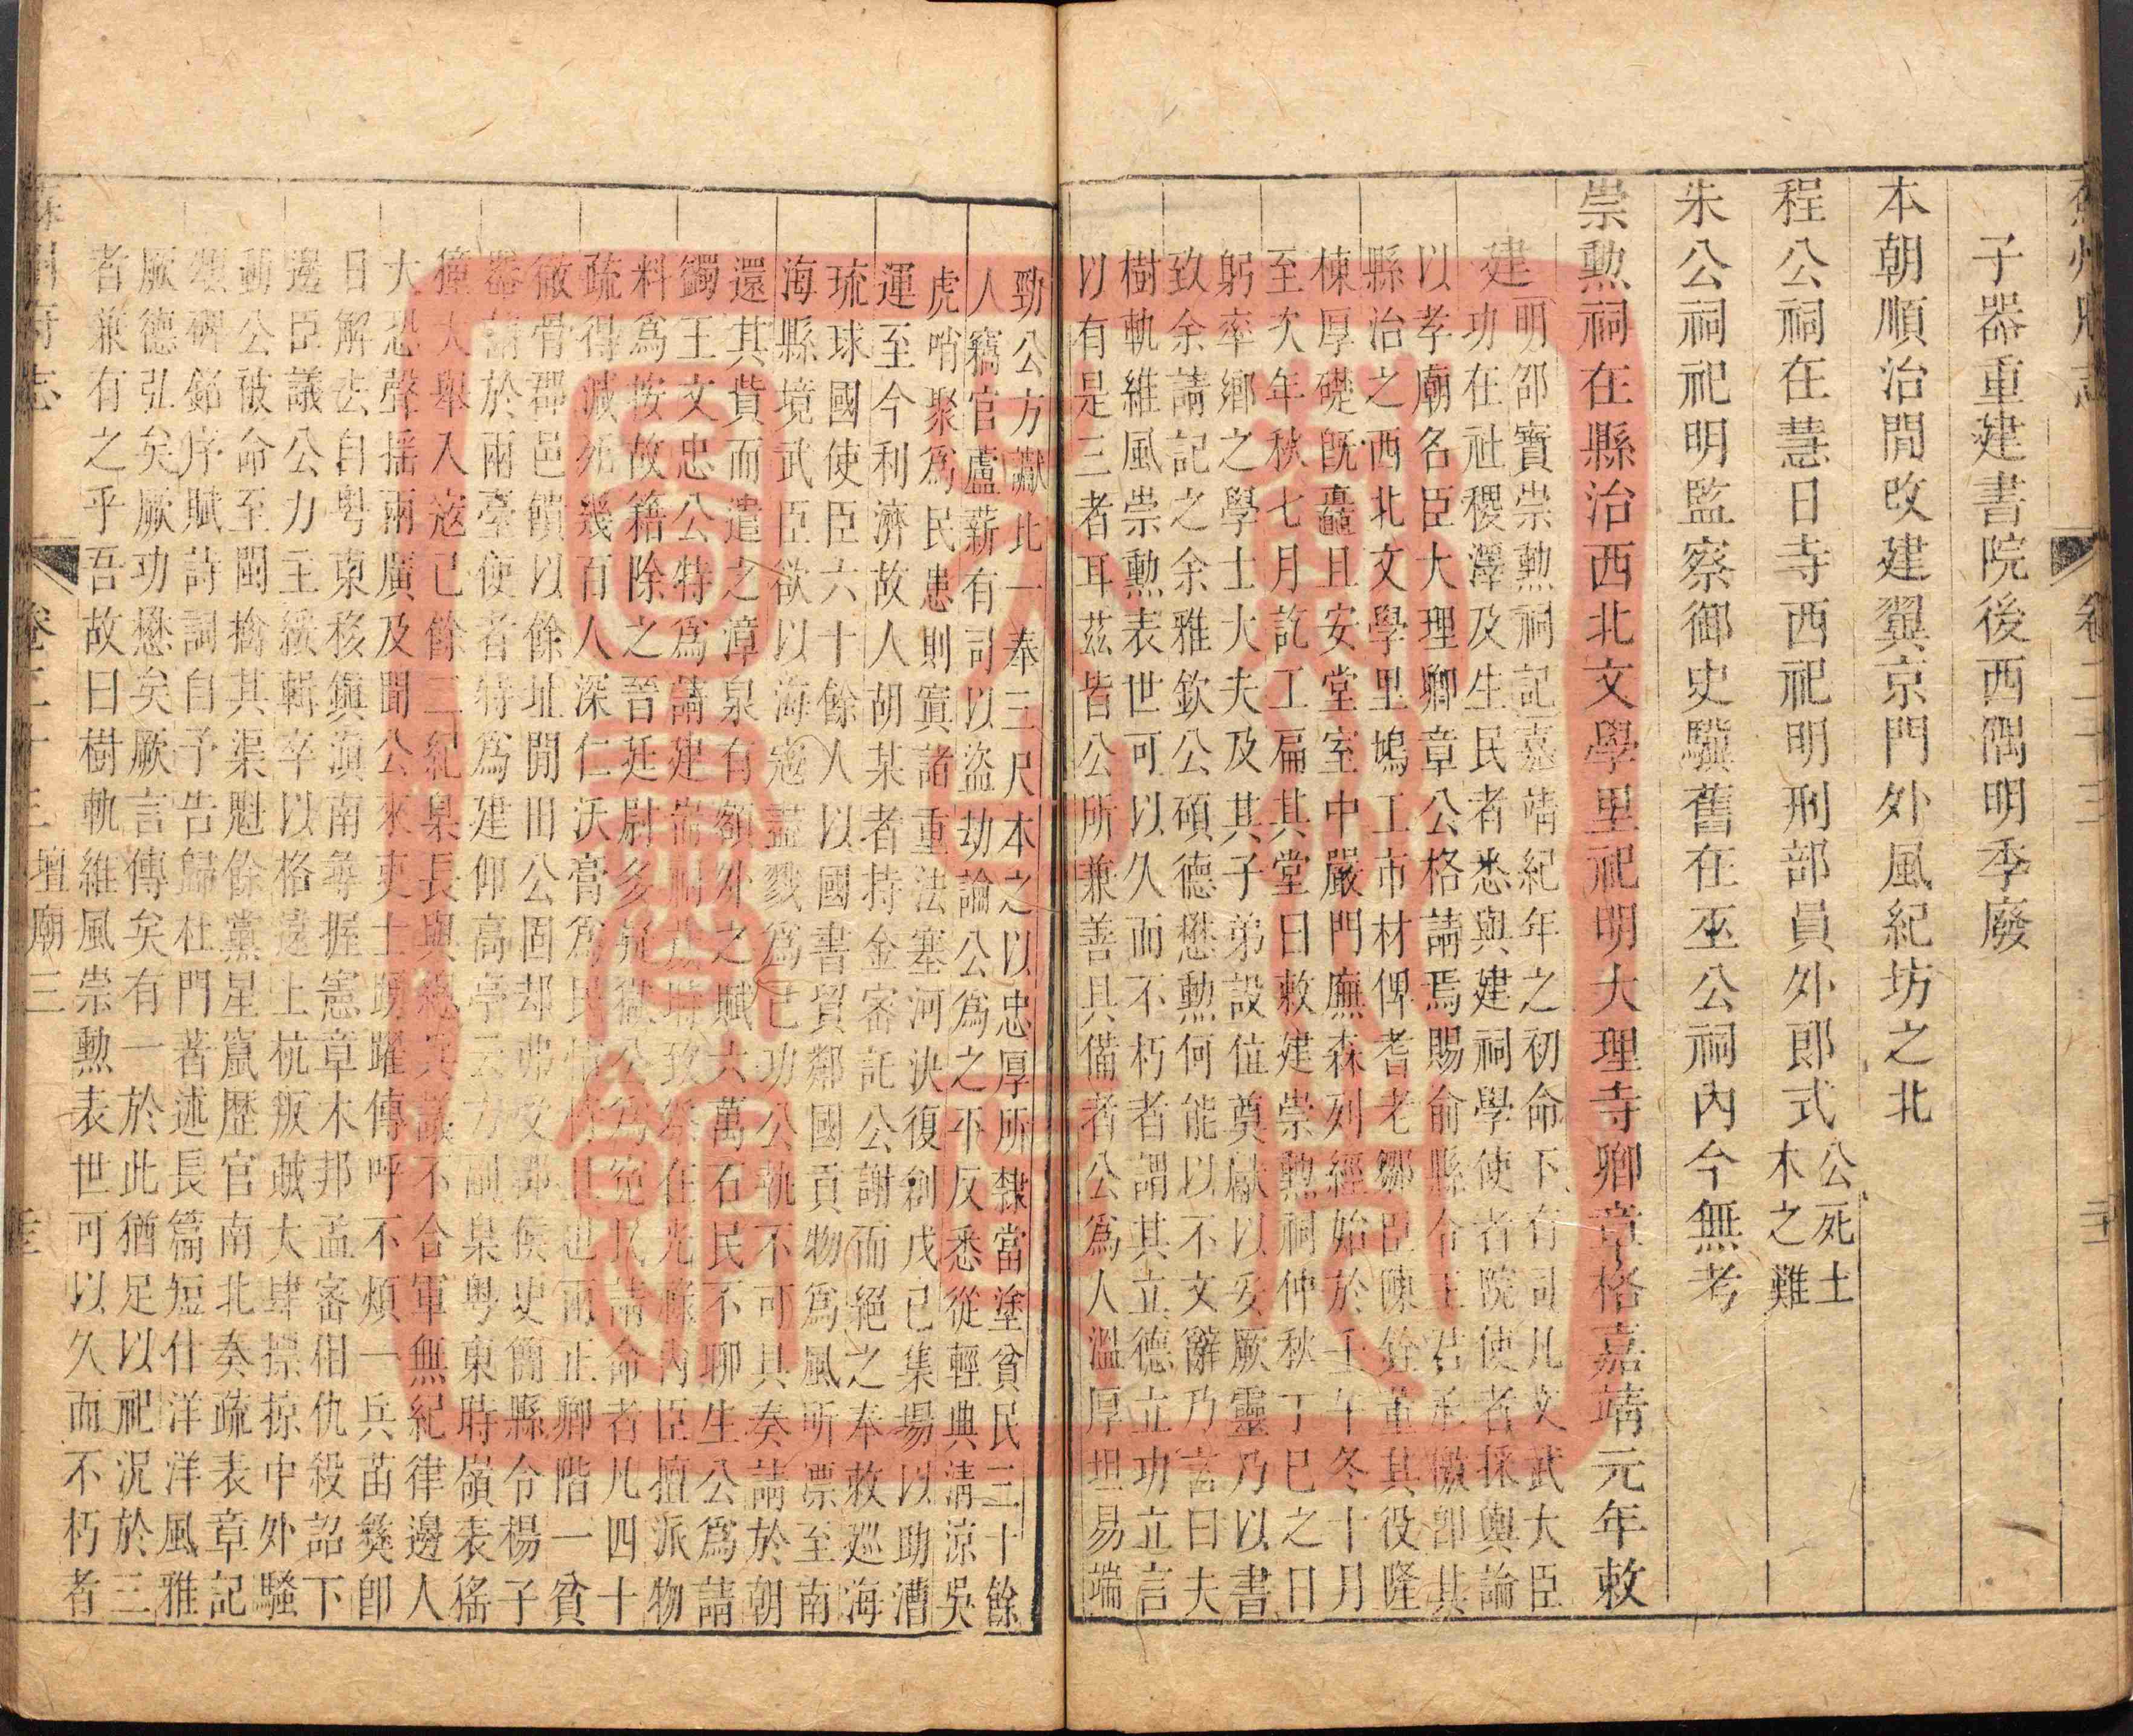 子器重建書院後西隅明季廢
本朝順治閒改建翼京門外風紀坊之北
程公祠在慧日寺西祀明刑部員外郎式公死土木之難
朱公祠祀明監察御史驥舊在巫公祠內今無考
崇勲祠在縣治西北文學里祀明大理寺卿章格嘉靖元年敕
建明邵寶崇勲祠記嘉靖紀年之初命下有司凡文武大臣
功在社稷澤及生民者悉與建祠學使者院使者採輿論
以孝廟名臣大理卿章公格請焉賜俞縣令王君承檄卽其
縣治之西北文學里塢工市材俾耆老鄒臣陳銓董其役隆
棟厚礎旣矗且安堂室中嚴門廡森列經始於壬午冬十月
至次年秋七月訖工扁其堂曰敕建崇勲祠仲秋丁巳之日
躬率鄉之學士大夫及其子弟設位奠獻以妥厥靈乃以書
致余請記之余雅欽公碩德懋勲何能以不文辭乃言曰夫
樹軌維風崇勲表世可以久而不朽者謂其立德立功立言
以有是三者耳茲皆公所兼善具備者公爲人溫厚坦易端
勁公方讞比一奉三尺本之以忠厚所隸當塗貧民三十餘
人竊官蘆薪有司以盜劫論公爲之平反悉從輕典淸涼吳
虎哨聚爲民患則寘諸重法塞河決復創戊己集場以助漕
運至今利濟故人胡某者持金密託公謝而絕之奉敕巡海
琉球國使臣六十餘人以國書貿鄰國貢物爲風所漂至南
海縣境武臣欲以海寇盡戮爲已功公執不可具奏請於朝
還其貲而遣之漳泉有額外之賦六萬石民不聊生公爲請
蠲王文忠公特爲請建祠
料爲按故籍除之晉廷尉多疑獄公爲冤民請命者凡四十
疏得減死幾百人深仁沃膏爲民
徹骨郡邑饋以餘址閒田公固却弗受郡侯史簡縣令楊子
器請於兩臺使者特爲建仰高亭
大恐聲搖兩廣及聞公來吏士踴躍傳呼不煩一兵苗獠卽
日解去自粵東移鎮滇南尋握憲章木邦孟密相仇殺詔下
邊臣議公力主綏輯卒以格遠上杭叛賊大肆摽掠中外騷
動公被命至閩擒其渠魁餘黨星竄歷官南北奏疏表章記
序賦詩詞自予告歸杜門著述長篇短什洋洋風雅
厥德弘矣厥功懋矣厥言傳矣有一於此猶足以祀況於三
者兼有之乎吾故曰樹軌維風崇勲表世可以久而不朽者
壇廟三